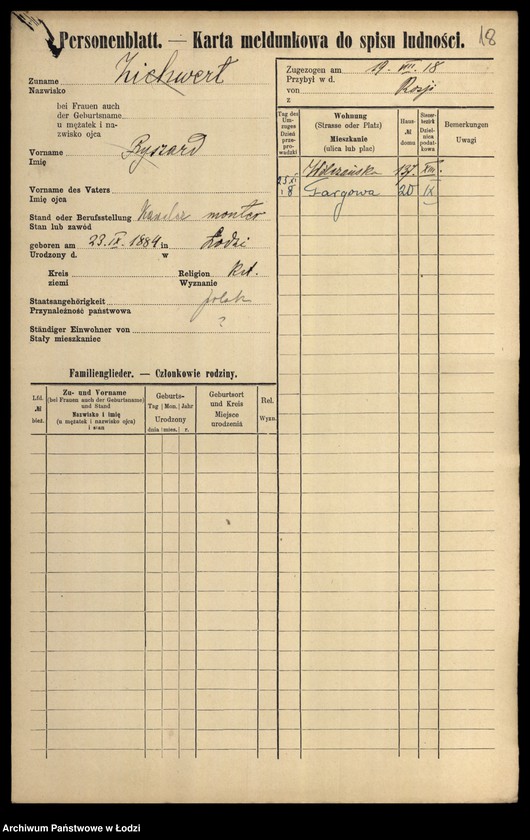 Personenblatt. — Karta meldunkowa do spisu ludności.
18
Zuname Zichwert
Nazwisko
bei Frauen auch
der Geburtsname
u mężatek i na-
zwisko ojca
Vorname Ryszard
Imię
Vorname des Vaters
Imię ojca
Stand oder Berufsstellung monter
Stan lub zawód
geboren am 23. IX. 1884 in Łodzi
Urodzony d. w
Kreis Religion kat.
ziemi Wyznanie
Staatsangehörigkeit polak
Przynależność państwowa
Ständiger Einwohner von ?
Stały mieszkaniec
Zugezogen am 19. VII. 18
Przybył w d.
von Rosji
z
Tag des Um-zuges Dzień prze-prowadzki
Wohnung (Strasse oder Platz) Mieszkanie (ulica lub plac)
Haus- № domu
Steuer-bezirk Dziel-nica podat-kowa
Bemerkungen Uwagi
Wólczańska 137 XIII.
25 XI 18 Targowa 20 IX
Familienglieder. — Członkowie rodziny.
Lfd. № bież.
Zu- und Vorname (bei Frauen auch der Geburtsname) und Stand Nazwisko i imię (u mężatek i nazwisko ojca) i stan
Geburts- Tag | Mon. | Jahr Urodzony dnia | mies. | r.
Geburtsort und Kreis Miejsce urodzenia
Rel. Wyzn.
Archiwum Państwowe w Łodzi